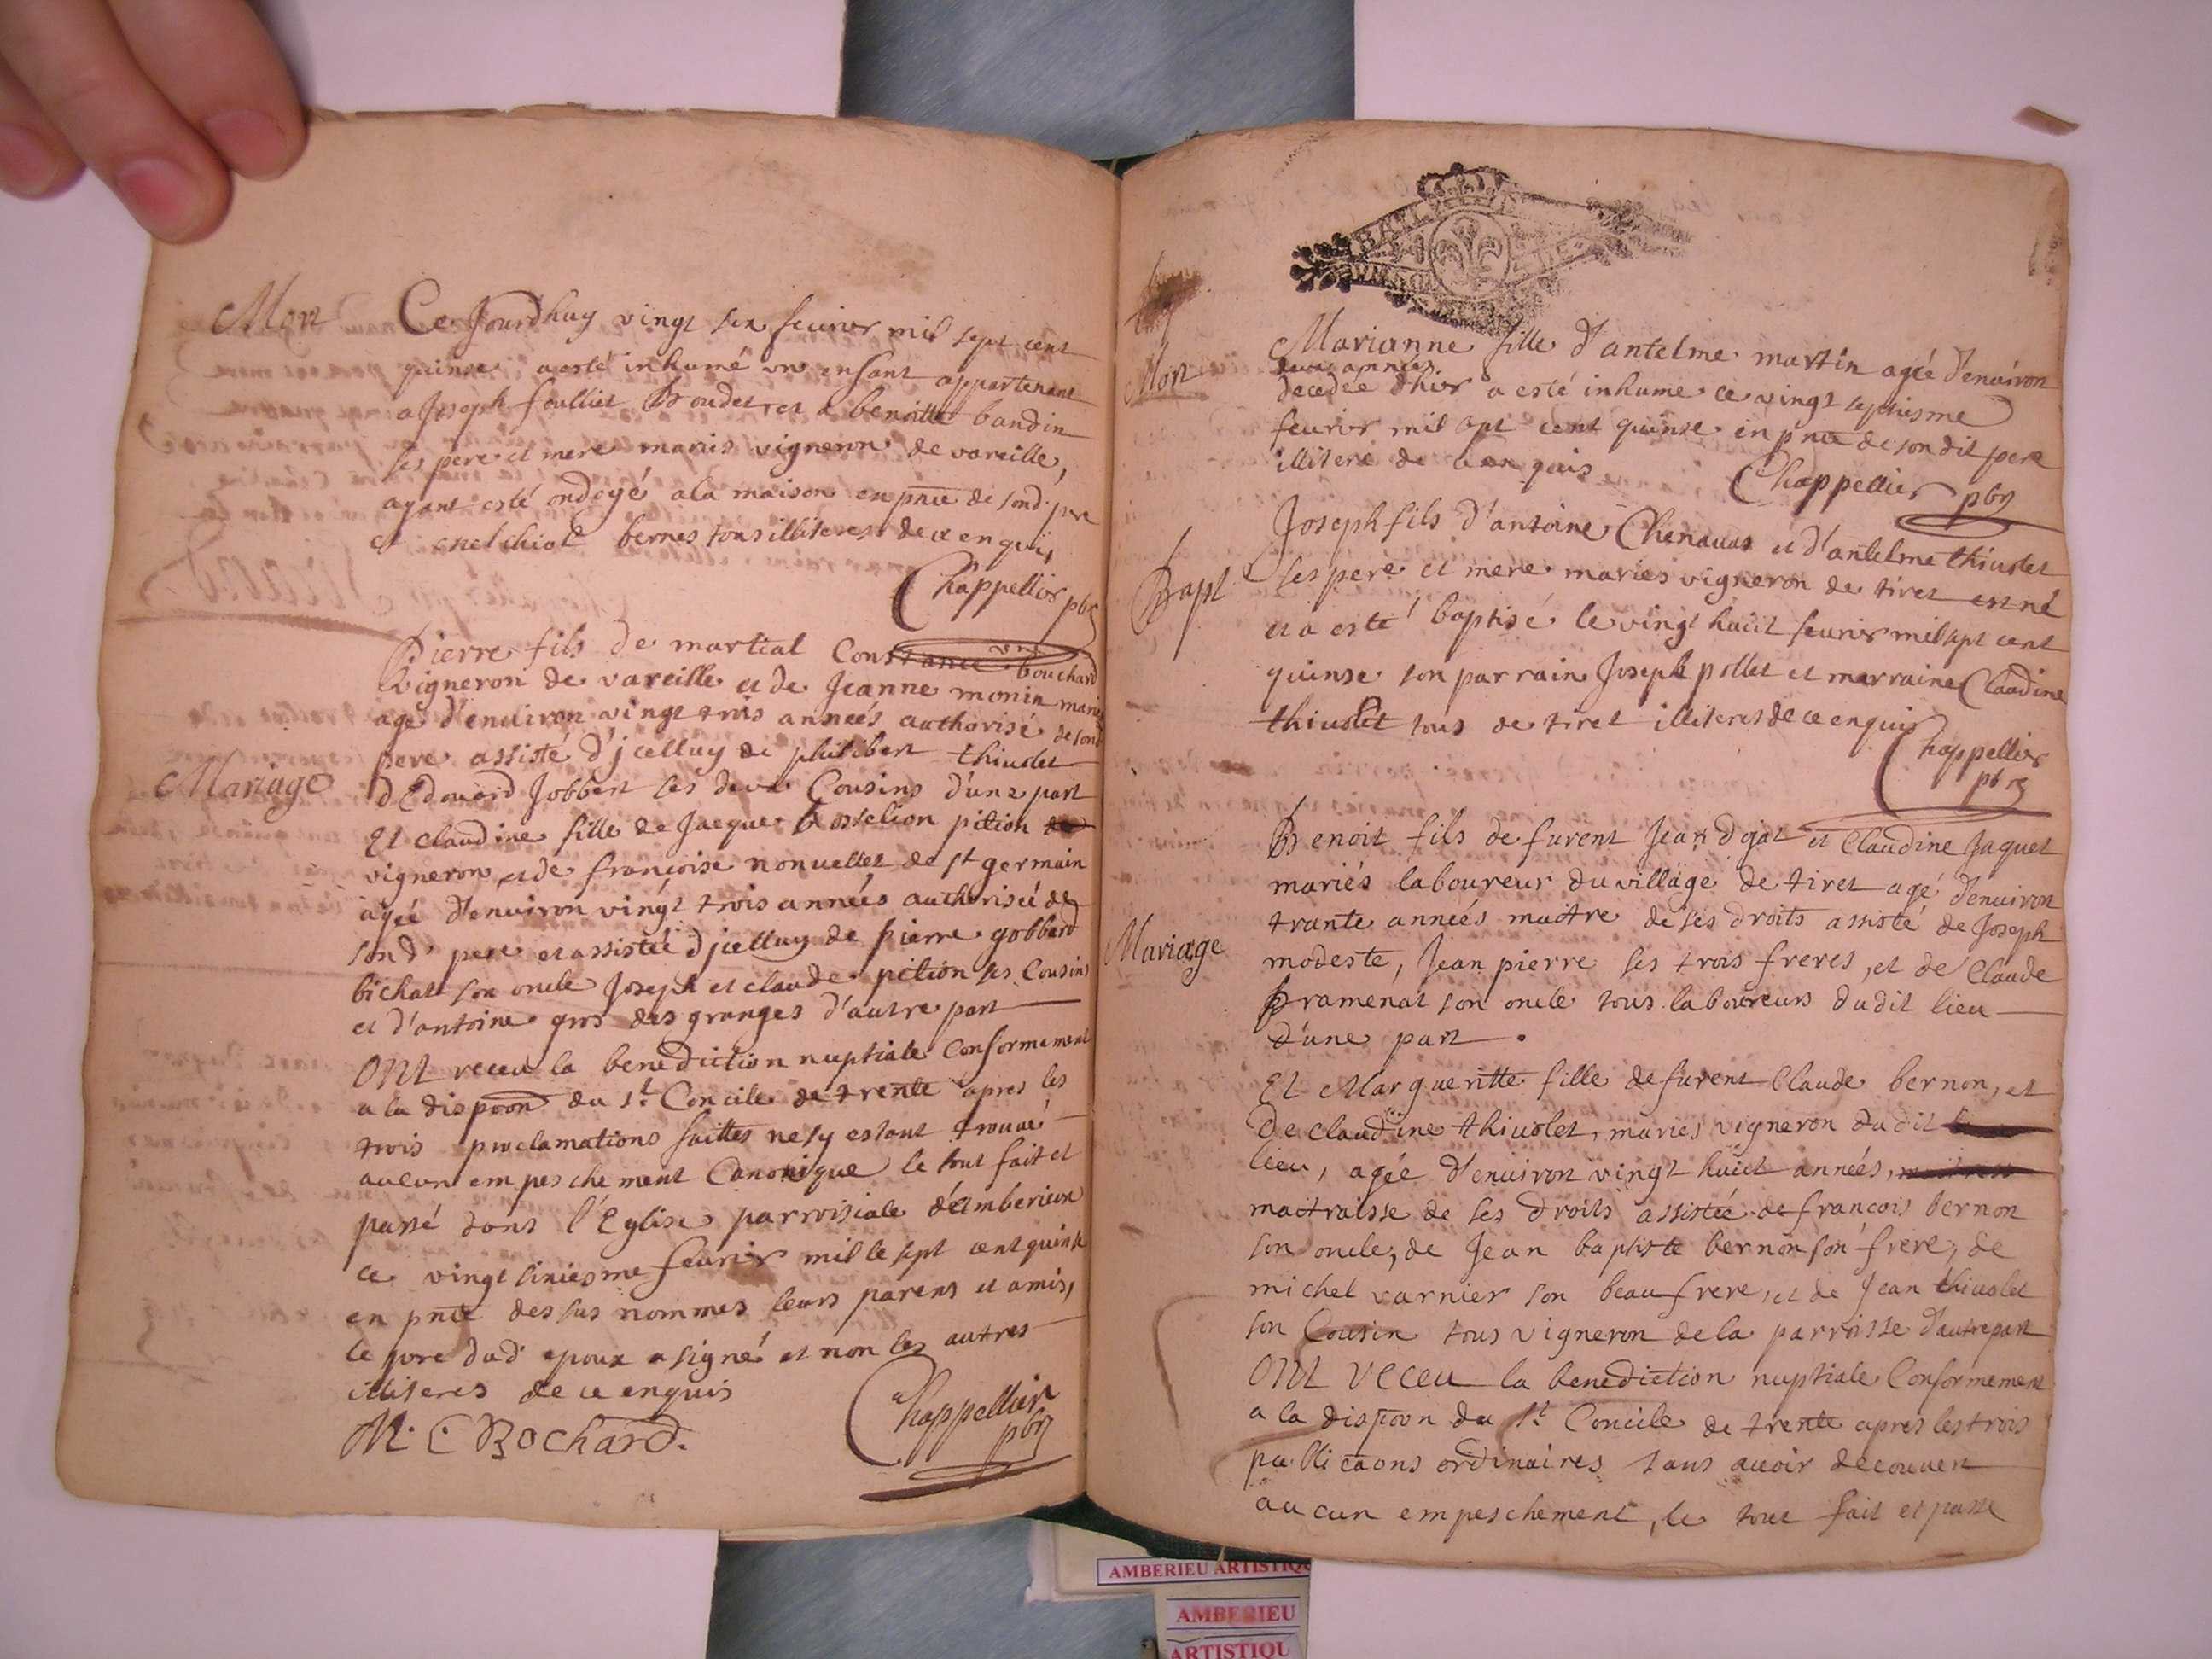 Mort
Ce Jourdhuy vingt six feurier mil sept cent
quinse a esté inhumé un enfant appartenant
a Joseph foulliet Boudet et a benoitte baudin
ses pere et mere mariés vigneron de vareille,
ayant esté ondoyé a la maison en pnce de sond. pere
et bernes tous illiteres de ce enquis
Chappellier pbr
Mariage
Pierre fils de martial bouchard
vigneron de vareille et de Jeanne monin mariés
agé d'enuiron vingt trois années authorisé de sond
pere assisté d'jcelluy de philibert thiuolet
d'Edouard Jobbert ses deux Cousins d'une part
Et claudine fille de Jacque bosselion pition
vigneron et de françoise nonuellet de st germain
agée d'enuiron vingt trois années authorisée de
sond pere et assistée d'jcelluy de pierre gobberd
bichat son oncle Joseph et claude pition ses Cousins
et d'antoine gros des granges d'autre part
ONt receu la benediction nuptiale Conformement
a la dispoon du st Concile de trente apres les
trois proclamations faittes ne sy estant trouué
aucun empeschement Canonique le tout fait et
passé dans l'Eglise parroisiale d'Amberieux
ce vingt sixiesme feurier mille sept cent quinse
en pnce des sus nommes leurs parens et amis,
le pere dud epoux a signé et non les autres
illiteres de ce enquis
M. C Bochard.
Chappellier
pbr
Mort
Marianne fille d'antelme martin agée d'enuiron
deux années
decedée d'hier a esté inhume ce vingt septiesme
feurier mil sept cent quinse en pnce de son dit pere
illitere de ce enquis
Chappellier pbr
Bapt
Joseph fils d'antoine Chenauas et d'antelme thiuolet
ses pere et mere mariés vigneron de tiret est né
et a esté baptisé le vingt huict feurier mil sept cent
quinse son parrain Joseph pillet et marraine Claudine
thiuolet tous de tiret illiteres de ce enquis
Chappellier
pbr
Mariage
Benoit fils de furent Jean dgat et Claudine Jaquet
mariés laboureur du village de tiret agé d'enuiron
trante années maitre de ses droits assisté de Joseph
modeste, Jean pierre ses trois freres, et de Claude
pramenat son oncle tous laboureurs dudit lieu
d'une part.
Et Margueritte fille de furent Claude bernon, et
De claudine thiuolet, mariés vigneron dudit
lieu, agée d'enuiron vingt huict années,
maitraisse de ses droits assistée de françois bernon
son oncle, de Jean baptiste bernon son frere, de
michel varnier son beaufrere, et de Jean thiuolet
son Cousin tous vigneron de la parroisse d'autre part
ONt receu la benediction nuptiale Conformement
a la dispoon du st Concile de trente apres les trois
publicaons ordinaires sans auoir decouuert
aucun empeschement, le tout fait et passé
AMBERIEU ARTISTIQU
AMBERIEU
ARTISTIQU